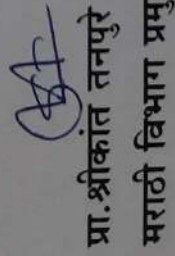 प्रा.श्रीकांत तनपुरे
मराठी विभाग प्रमु